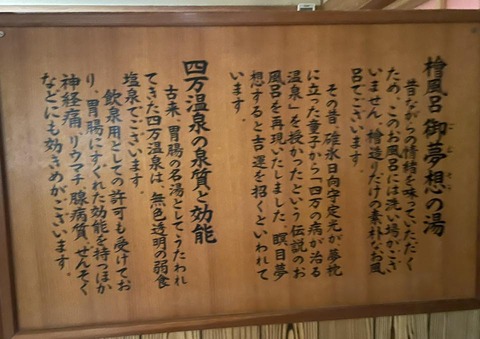 檜風呂 御夢想の湯
昔ながらの情緒を味っていただく
ため、このお風呂には洗い場がござ
いません。檜造りだけの素朴なお風
呂でございます。
その昔、碓氷日向守定光が夢枕
に立った童子から「四万の病が治る
温泉」を授かったという伝説のお
風呂を再現いたしました。瞑目夢
想すると吉運を招くといわれて
います。
四万温泉の泉質と効能
古来、胃腸の名湯としてうたわれ
てきた四万温泉は、無色透明の弱食
塩泉でございます。
飲泉用としての許可も受けてお
り、胃腸にすぐれた効能を持つほか
神経痛、リウマチ、腺病質、ぜんそく
などにも効きめがございます。